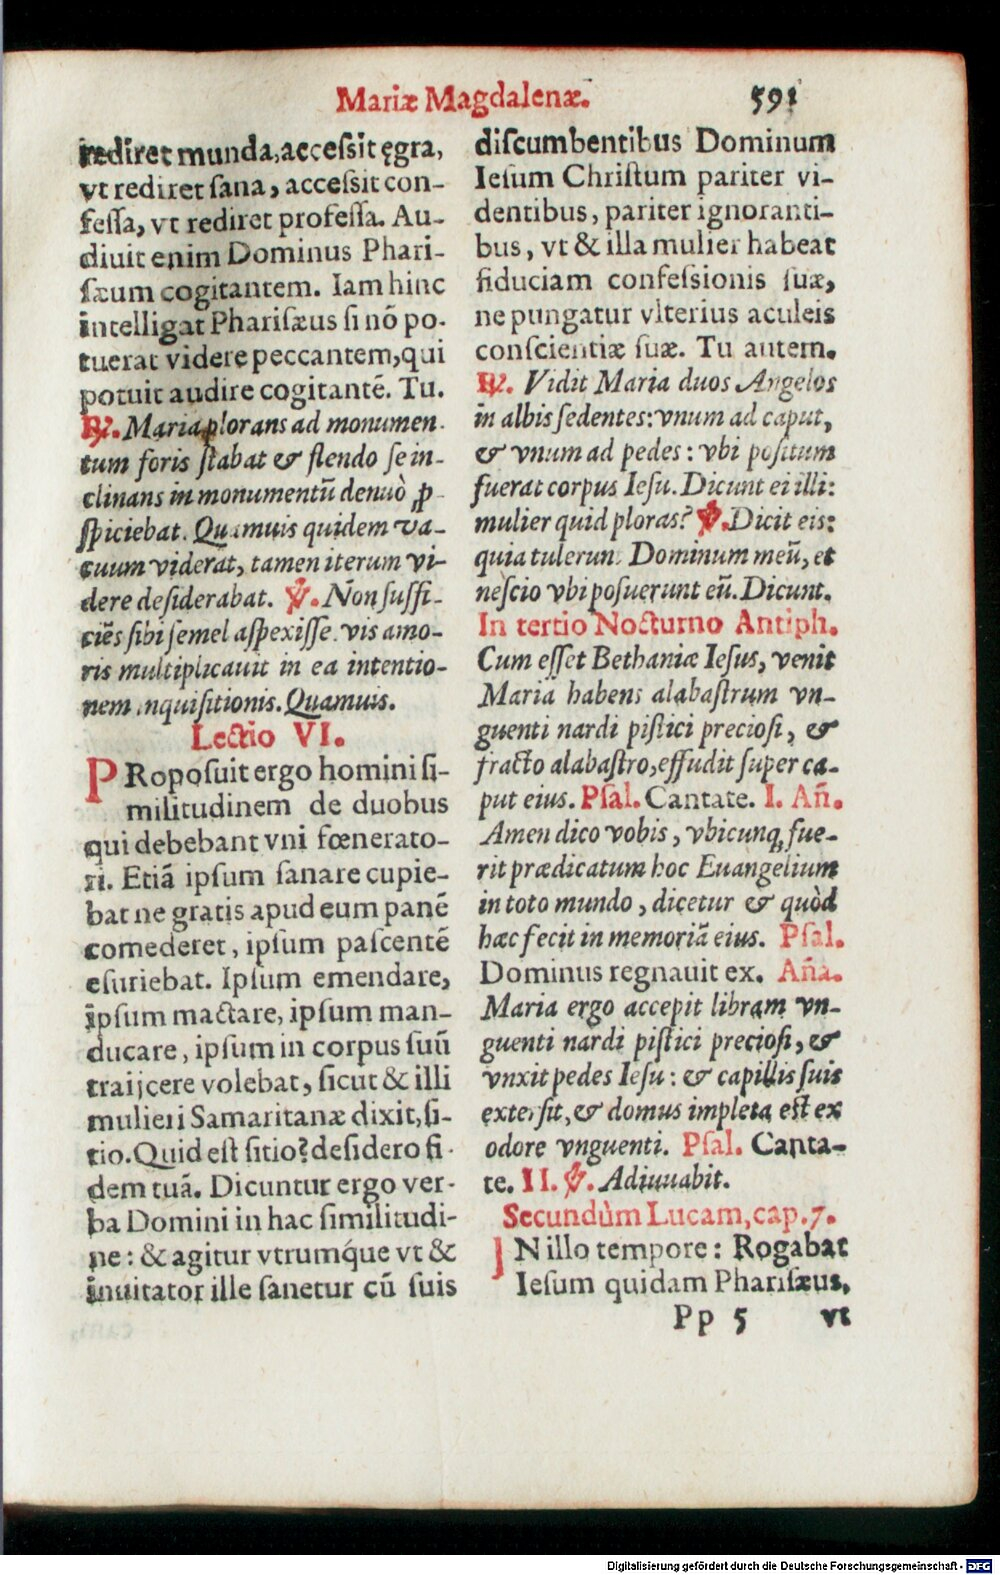 Mariæ Magdalenæ. 591
rediret munda, accessit ęgra,
vt rediret sana, accessit con-
fessa, vt rediret professa. Au-
diuit enim Dominus Phari-
sæum cogitantem. Iam hinc
intelligat Pharisæus si nō po-
tuerat videre peccantem, qui
potuit audire cogitantē. Tu.
℟. Maria plorans ad monumen-
tum foris stabat & flendo se in-
clinans in monumentū denuò ꝓ-
spiciebat. Quamuis quidem va-
cuum viderat, tamen iterum vi-
dere desiderabat. ℣. Non suffi-
ciēs sibi semel aspexisse. vis amo-
ris multiplicauit in ea intentio-
nem inquisitionis. Quamuis.
Lectio VI.
PRoposuit ergo homini si-
militudinem de duobus
qui debebant vni fœnerato-
ri. Etiā ipsum sanare cupie-
bat ne gratis apud eum panē
comederet, ipsum pascentē
esuriebat. Ipsum emendare,
ipsum mactare, ipsum man-
ducare, ipsum in corpus suū
traijcere volebat, sicut & illi
mulieri Samaritanæ dixit, si-
tio. Quid est sitio? desidero fi-
dem tuā. Dicuntur ergo ver-
ba Domini in hac similitudi-
ne: & agitur vtrumq́ue vt &
inuitator ille sanetur cū suis
discumbentibus Dominum
Iesum Christum pariter vi-
dentibus, pariter ignoranti-
bus, vt & illa mulier habeat
fiduciam confessionis suæ,
ne pungatur vlterius aculeis
conscientiæ suæ. Tu autem.
℟. Vidit Maria duos Angelos
in albis sedentes: vnum ad caput,
& vnum ad pedes: vbi positum
fuerat corpus Iesu. Dicunt ei illi:
mulier quid ploras? ℣. Dicit eis:
quia tulerunt Dominum meū, et
nescio vbi posuerunt eū. Dicunt.
In tertio Nocturno Antiph.
Cum esset Bethaniæ Iesus, venit
Maria habens alabastrum vn-
guenti nardi pistici preciosi, &
fracto alabastro, effudit super ca-
put eius. Psal. Cantate. I. Añ.
Amen dico vobis, vbicunq; fue-
rit prædicatum hoc Euangelium
in toto mundo, dicetur & quòd
hæc fecit in memoriā eius. Psal.
Dominus regnauit ex. Aña.
Maria ergo accepit libram vn-
guenti nardi pistici preciosi, &
vnxit pedes Iesu: & capillis suis
extersit, & domus impleta est ex
odore vnguenti. Psal. Canta-
te. II. ℣. Adiuuabit.
Secundùm Lucam, cap. 7.
IN illo tempore: Rogabat
Iesum quidam Pharisæus,
Pp 5 vt
Digitalisierung gefördert durch die Deutsche Forschungsgemeinschaft - DFG